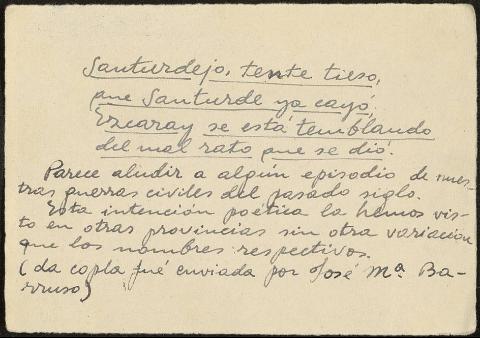 Santurdejo, tente tieso,
que Santurde ya cayó;
Ezcaray se está temblando
del mal rato que se dió.
Parece aludir a algún episodio de nues-
tras guerras civiles del pasado siglo.
Esta intención poética la hemos vis-
to en otras provincias sin otra variación
que los nombres respectivos.
(La copla fué enviada por José Mª. Ba-
rruso)